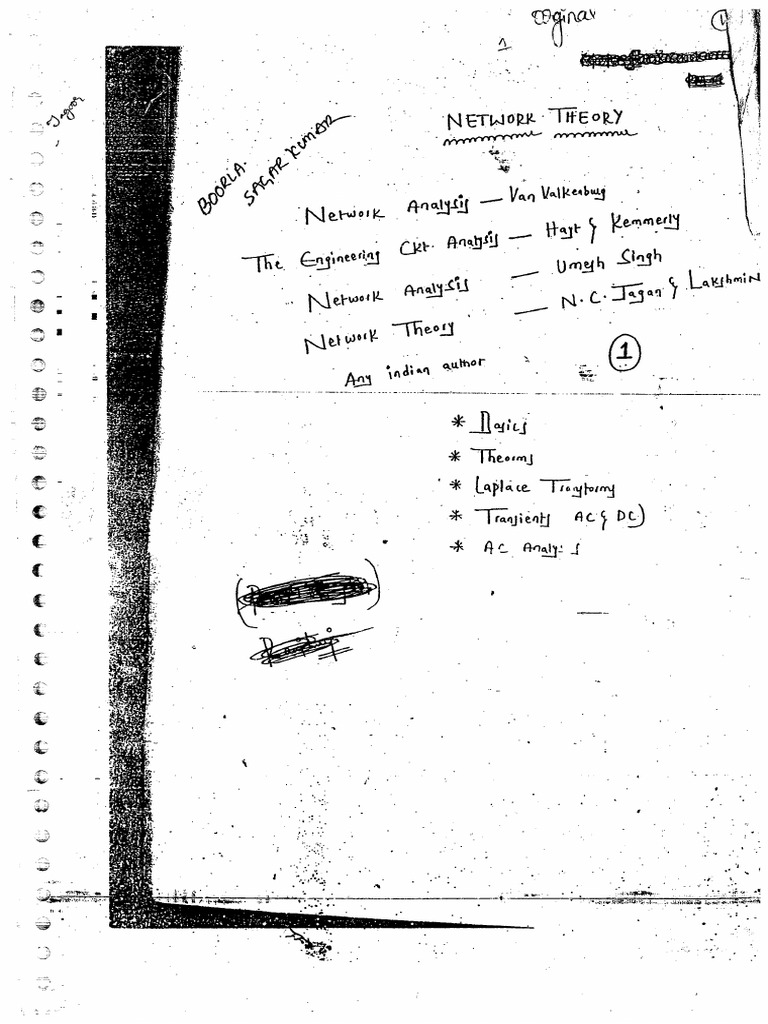 1
1
NETWORK THEORY
BOORLA.
SAGAR KUMAR
Network Analysis — Van Valkenburg
The Engineering Ckt. Analysis — Hayt & Kemmerly
Network Analysis — Umesh Singh
Network Theory — N.C. Jagan & Lakshmin
Any indian author
1
* Basics
* Theorms
* Laplace Transforms
* Transients AC & DC)
* AC Analysis